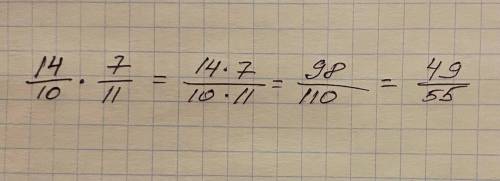 14/10 · 7/11 = 14·7/10·11 = 98/110 = 49/55